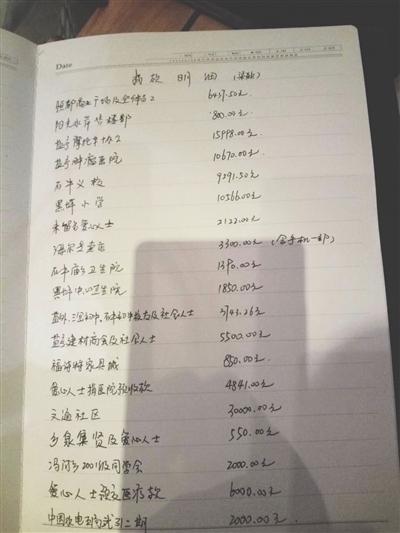 Date
捐款明细
6437.50元
阳光水岸售楼部 800.00元
盐亭摩托车协会 15998.00元
盐亭肿瘤医院 10670.00元
石牛义校 9291.50元
黑坪小学 10566.00元
未留名爱心人士 2122.00元
海尔专卖店 3300.00元 (含手机一部)
石牛庙乡卫生院 1390.00元
黑坪中心卫生院 1850.00元
及社会人士 3743.26元
盐亭建材商会及社会人士 5500.00元
福海特家具城 850.00元
爱心人士捐医院预收款 4841.00元
文通社区 30000.00元
乡泉集贤及爱心人士 550.00元
冯河乡2001级同学会 2000.00元
爱心人士 医疗款 6000.00元
中国 二期 2000.00元